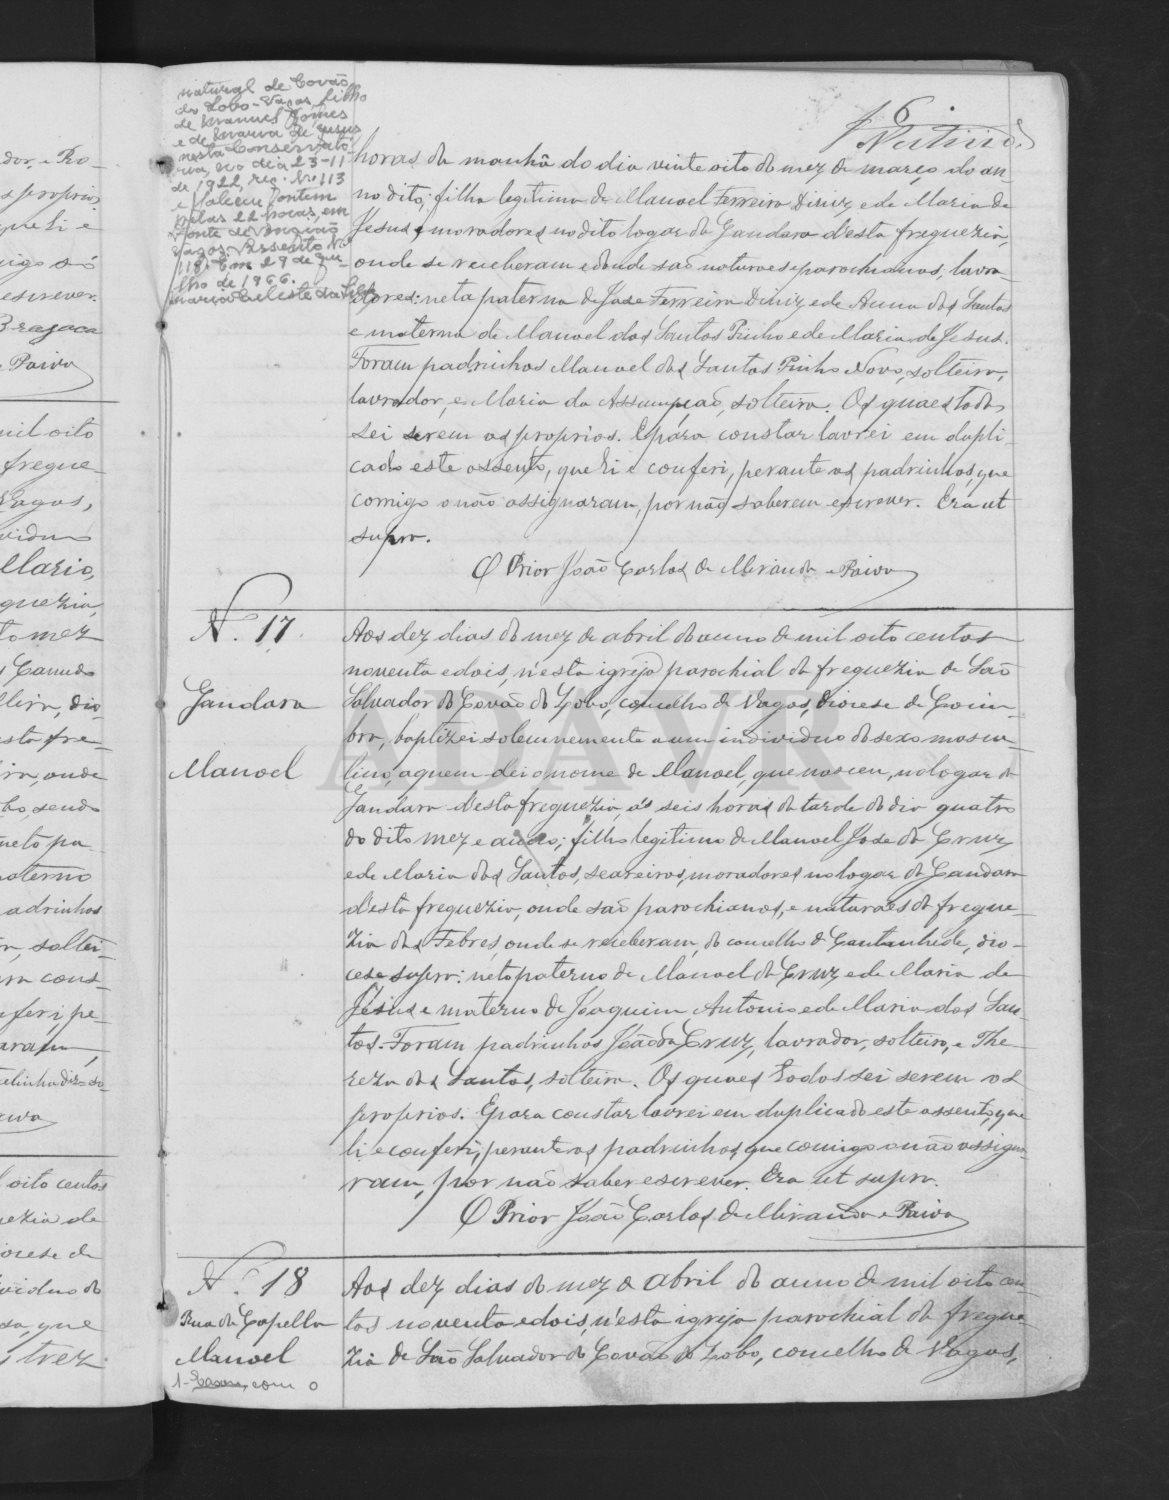 natural de Covão
do Lobo-Vagos, filho
de Manuel Gomes
e de Maria de Jesus
nesta Conservató
ria, no dia 23-11
de 1922, reg. Nº 113
e faleceu ontem
pelas 22 horas, em
Fonte de
Vagos. Assento Nº
118. Em 29 de ju-
lho de 1966.
Maria Celeste da
6
horas da manhã do dia vinte oito do mez de março do an-
no dito; filha legitima de Manoel Ferreira Diniz, e de Maria de
Jesus, moradores no dito logar da Gandara d'esta freguezia,
onde se receberam e donde são naturaes e parochianos, lavra-
dores: neta paterna de Jose Ferreira Diniz e de Anna dos Santos
e materna de Manoel dos Santos Pinho e de Maria de Jesus.
Foram padrinhos Manoel dos Santos Pinho Novo, solteiro,
lavrador, e Maria da Assumpção, solteira. Os quaes todos
sei serem os proprios. E para constar lavrei em dupli-
cado este assento, que li e conferi, perante os padrinhos, que
comigo o não assignaram, por não saberem escrever. Era ut
supra.
O Prior João Carlos de Miranda e Paiva
N.º 17.
Gandara
Manoel
Aos dez dias do mez de abril do anno de mil oito centos
noventa e dois, n'esta igreja parochial da freguezia de São
Salvador do Covão do Lobo, concelho de Vagos, diocese de Coim-
bra, baptizei solemnemente a um individuo do sexo mascu-
lino, a quem dei o nome de Manoel, que nasceu, no logar da
Gandara d'esta freguezia, ás seis horas da tarde do dia quatro
do dito mez e anno; filho legitimo de Manoel Jose da Cruz,
e de Maria dos Santos, seareiros, moradores no logar da Gandara
d'esta freguezia, onde são parochianos, e naturaes da fregue-
zia das Febres, onde se receberam, do concelho de Cantanhede, dio-
cese supra: neto paterno de Manoel da Cruz e de Maria de
Jesus e materno de Joaquim Antonio e de Maria dos San-
tos. Foram padrinhos João da Cruz, lavrador, solteiro, e The-
reza dos Santos, solteira. Os quaes todos sei serem os
proprios. E para constar lavrei em duplicado este assento, que
li e conferi, perante os padrinhos, que comigo o não assigna-
ram, por não saber escrever. Era ut supra.
O Prior João Carlos de Miranda e Paiva
N.º 18
Rua da Capella
Manoel
1- Casou, com o
Aos dez dias do mez de abril do anno de mil oito cen-
tos noventa e dois, n'esta igreja parochial da fregue-
zia de São Salvador do Covão do Lobo, concelho de Vagos,